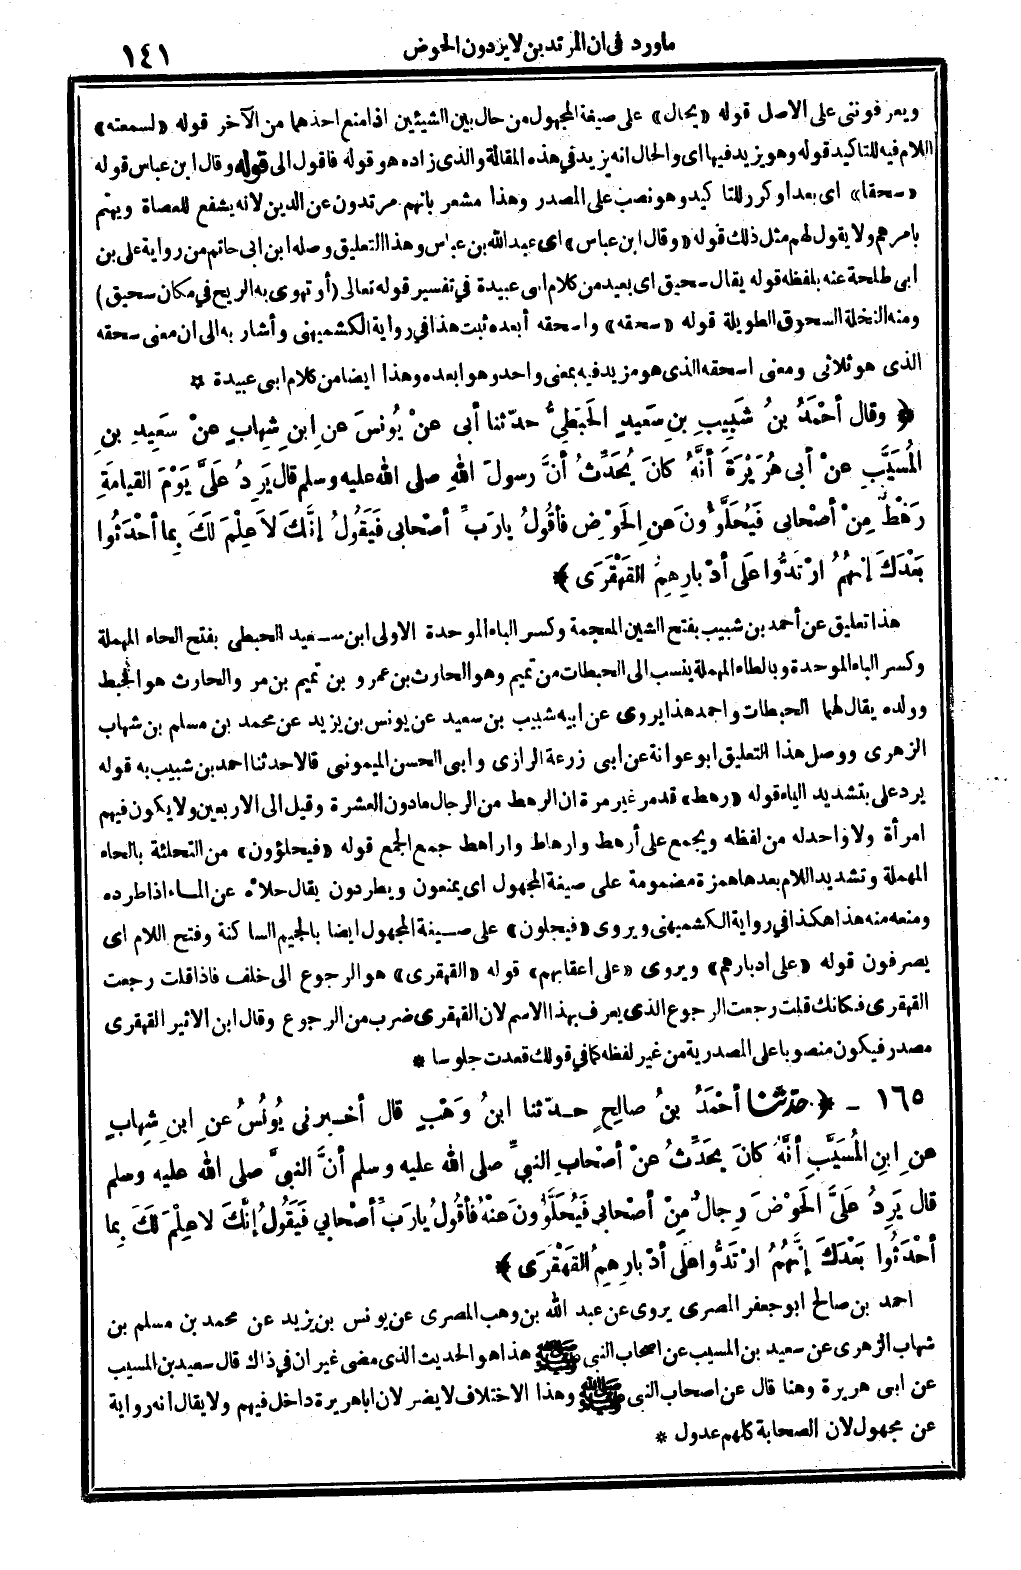 ما ورد في ان المرتدين لا يردون الحوض
١٤١
ويعرفونني على الاصل قوله «يحال» على صيغة المجهول من حال بين الشيئين اذا منع احدهما من الآخر قوله «لسمعته»
اللام فيه للتاكيد قوله وهو يزيد فيها اى والحال انه يزيد في هذه المقالة والذى زاده هو قوله فاقول الى قوله وقال ابن عباس قوله
«سحقا» اى بعدا وكرر للتا كيد وهو نصب على المصدر وهذا مشعر بانهم مرتدون عن الدين لانه يشفع للعصاة ويهتم
بامرهم ولا يقول لهم مثل ذلك قوله «وقال ابن عباس» اى عبد الله بن عباس وهذا التعليق وصله ابن ابى حاتم من رواية على بن
ابى طلحة عنه بلفظه قوله يقال سحيق اى بعيد من كلام ابى عبيدة في تفسير قوله تعالى (أو تهوى به الريح في مكان سحيق)
ومنه النخلة السحوق الطويلة قوله «سحقه» واسحقه أبعده ثبت هذا في رواية الكشميهنى وأشار به الى ان معنى سحقه
الذى هو ثلاثى ومعنى اسحقه الذى هو مزيد فيه بمعنى واحد وهو ابعده وهذا ايضا من كلام ابى عبيدة *
﴿ وقال أحْمَدُ بنُ شَبِيبِ بنِ سَعِيدٍ الحَبَطِيُّ حدّثنا أبى عنْ يُونُسَ عنِ ابنِ شِهابٍ عنْ سَعِيدِ بنِ
المُسَيَّبِ عنْ أبى هُرَيْرَةَ أنَّهُ كانَ يُحَدِّثُ أنَّ رسولَ اللهِ صلى الله عليه وسلم قال يَرِدُ عَلَىَّ يَوْمَ القيامَةِ
رَهْطٌ مِنْ أصْحابى فَيُحَلَّؤُونَ عنِ الحَوْضِ فأقُولُ يارَبِّ أصْحابى فَيَقُولُ إنَّكَ لاَ عِلْمَ لَكَ بِما أحْدَثُوا
بَعْدَكَ إنهُمُ ارْتَدُّوا عَلى أدْبارِهِمُ القَهْقَرَى ﴾
هذا تعليق عن أحمد بن شبيب بفتح الشين المعجمة وكسر الباء الموحدة الاولى ابن سعيد الحبطى بفتح الحاء المهملة
وكسر الباء الموحدة وبالطاء المهملة ينسب الى الحبطات من تميم وهو الحارث بن عمرو بن تميم بن مر والحارث هو الحبط
وولده يقال لهما الحبطات واحمد هذا يروى عن ابيه شبيب بن سعيد عن يونس بن يزيد عن محمد بن مسلم بن شهاب
الزهرى ووصل هذا التعليق ابو عوانة عن ابى زرعة الرازى وابى الحسن الميمونى قالا حدثنا احمد بن شبيب به قوله
يرد على بتشديد الياء قوله «رهط» قد مر غير مرة ان الرهط من الرجال مادون العشرة وقيل الى الاربعين ولا يكون فيهم
امرأة ولا واحد له من لفظه ويجمع على أرهط وارهاط واراهط جمع الجمع قوله «فيحلؤون» من التحلئة بالحاء
المهملة وتشديد اللام بعدها همزة مضمومة على صيغة المجهول اى يمنعون ويطردون يقال حلأه عن الماء اذا طرده
ومنعه منه هذا هكذا في رواية الكشميهنى ويروى «فيجلون» على صيغة المجهول ايضا بالجيم الساكنة وفتح اللام اى
يصرفون قوله «على ادبارهم» ويروى «على اعقابهم» قوله «القهقرى» هو الرجوع الى خلف فاذا قلت رجعت
القهقرى فكانك قلت رجعت الرجوع الذى يعرف بهذا الاسم لان القهقرى ضرب من الرجوع وقال ابن الاثير القهقرى
مصدر فيكون منصوبا على المصدرية من غير لفظه كما في قولك قعدت جلوسا *
١٦٥ - ﴿ حدّثنا أحْمَدُ بنُ صالِحٍ حدّثنا ابنُ وَهْبٍ قال أخبرنى يُونُسُ عنِ ابنِ شِهابٍ
عنِ ابنِ المُسَيَّبِ أنَّهُ كانَ يُحَدِّثُ عنْ أصْحابِ النبيِّ صلى الله عليه وسلم أنَّ النبيَّ صلى الله عليه وسلم
قال يَرِدُ عَلَىَّ الحَوْضَ رِجالٌ مِنْ أصْحابى فَيُحَلَّؤُونَ عَنْهُ فأقُولُ يارَبِّ أصْحابي فَيَقُولُ إنَّكَ لا عِلْمَ لَكَ بِما
أحْدَثُوا بَعْدَكَ إنَّهُمُ ارْتَدُّوا عَلَى أدْبارِهِمُ القَهْقَرَى ﴾
احمد بن صالح ابو جعفر المصرى يروى عن عبد الله بن وهب المصرى عن يونس بن يزيد عن محمد بن مسلم بن
شهاب الزهرى عن سعيد بن المسيب عن اصحاب النبى ﷺ هذا هو الحديث الذى مضى غير ان في ذاك قال سعيد بن المسيب
عن ابى هريرة وهنا قال عن اصحاب النبى ﷺ وهذا الاختلاف لا يضر لان ابا هريرة داخل فيهم ولا يقال انه رواية
عن مجهول لان الصحابة كلهم عدول *